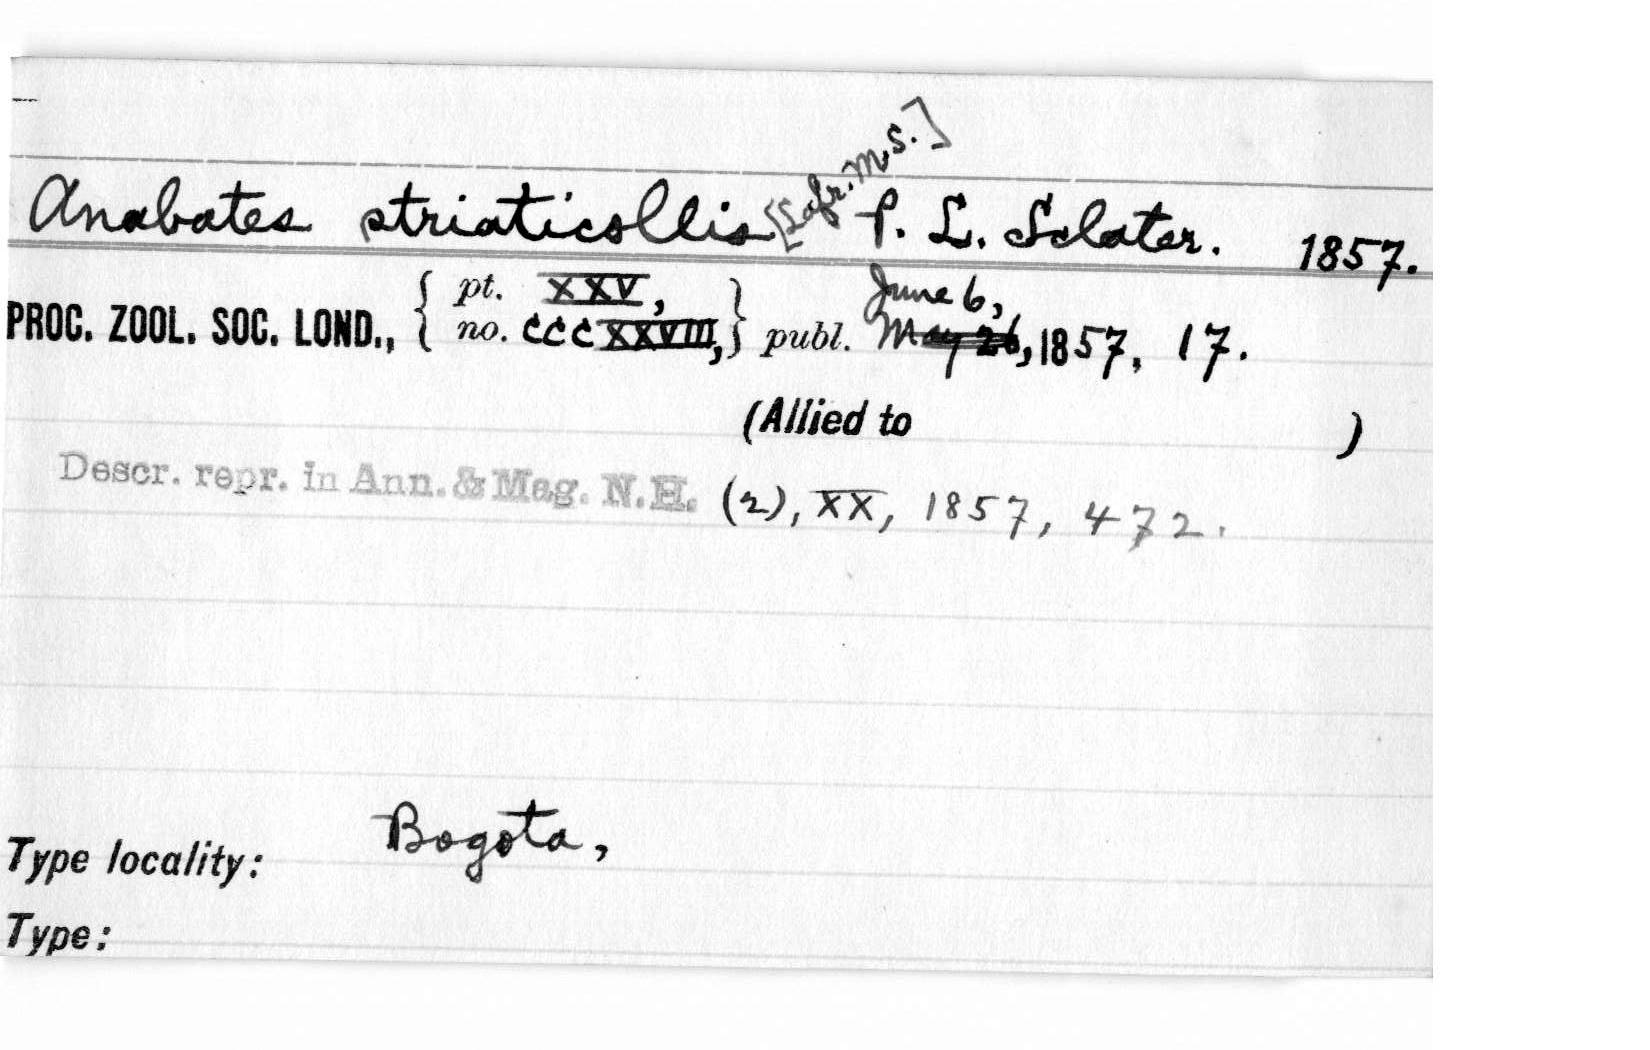 Anabates striaticollis [Lafr. M.S.] P. L. Sclater. 1857.
PROC. ZOOL. SOC. LOND., { pt. XXV, no. CCCXXVIII, } publ. May 26, June 6, 1857, 17.
(Allied to )
Descr. repr. in Ann. & Mag. N.H. (2), XX, 1857, 472.
Type locality: Bogota,
Type: